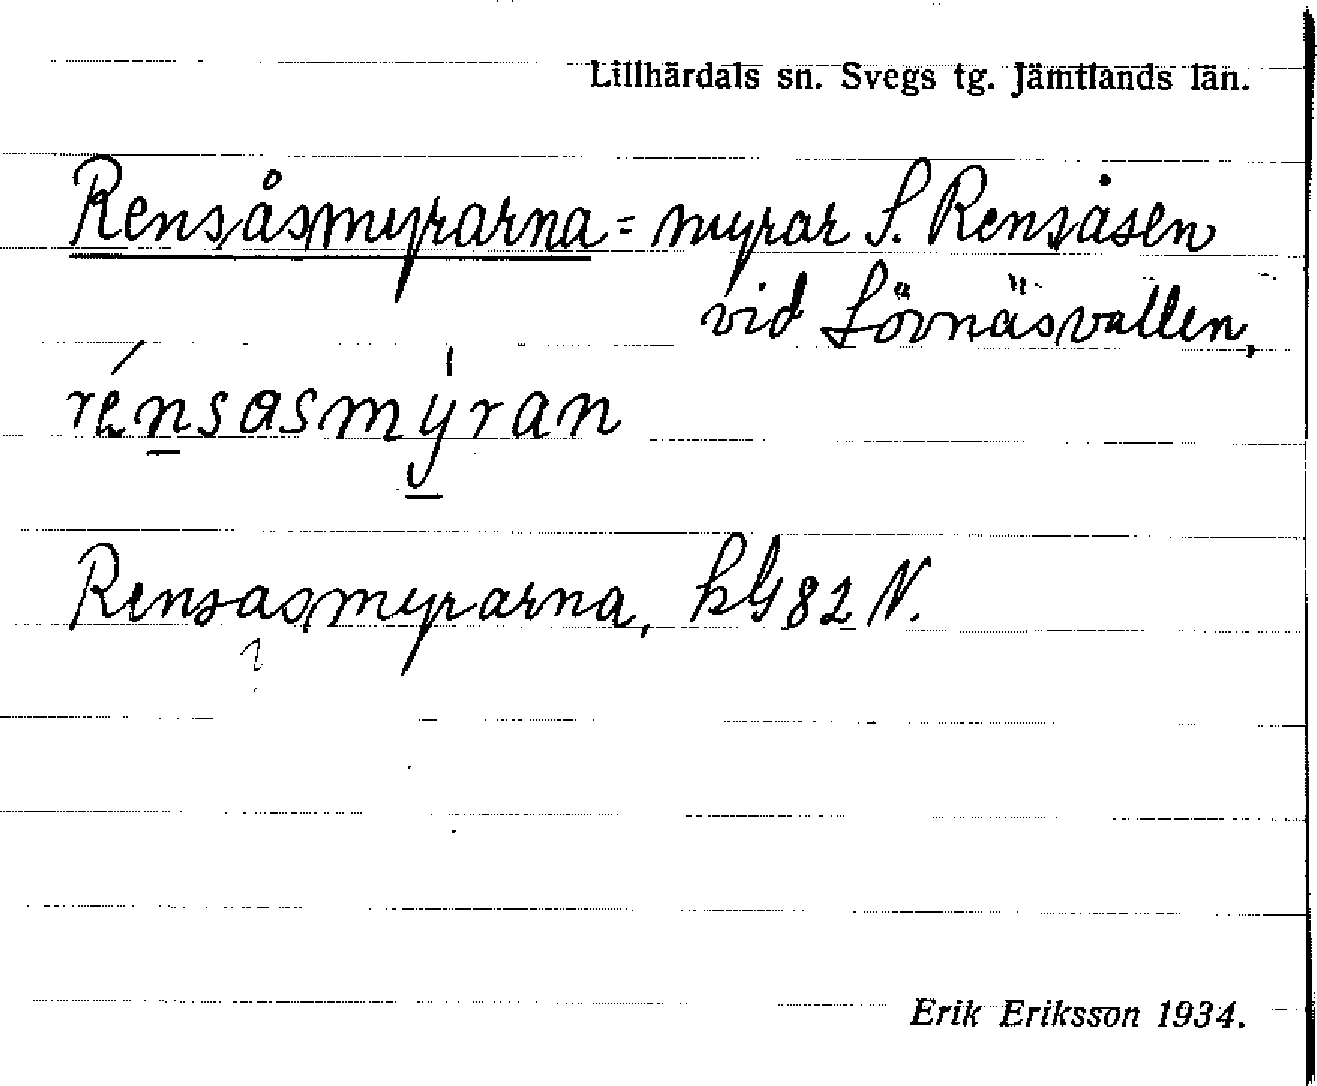 Lillhärdals sn. Svegs tg. Jämtlands län.
Rensåsmyrarna = myrar S. Rensåsen
vid Lövnäsvallen,
rénsasmýran
Rensasmyrarna, kbl 82 N.
?
Erik Eriksson 1934.